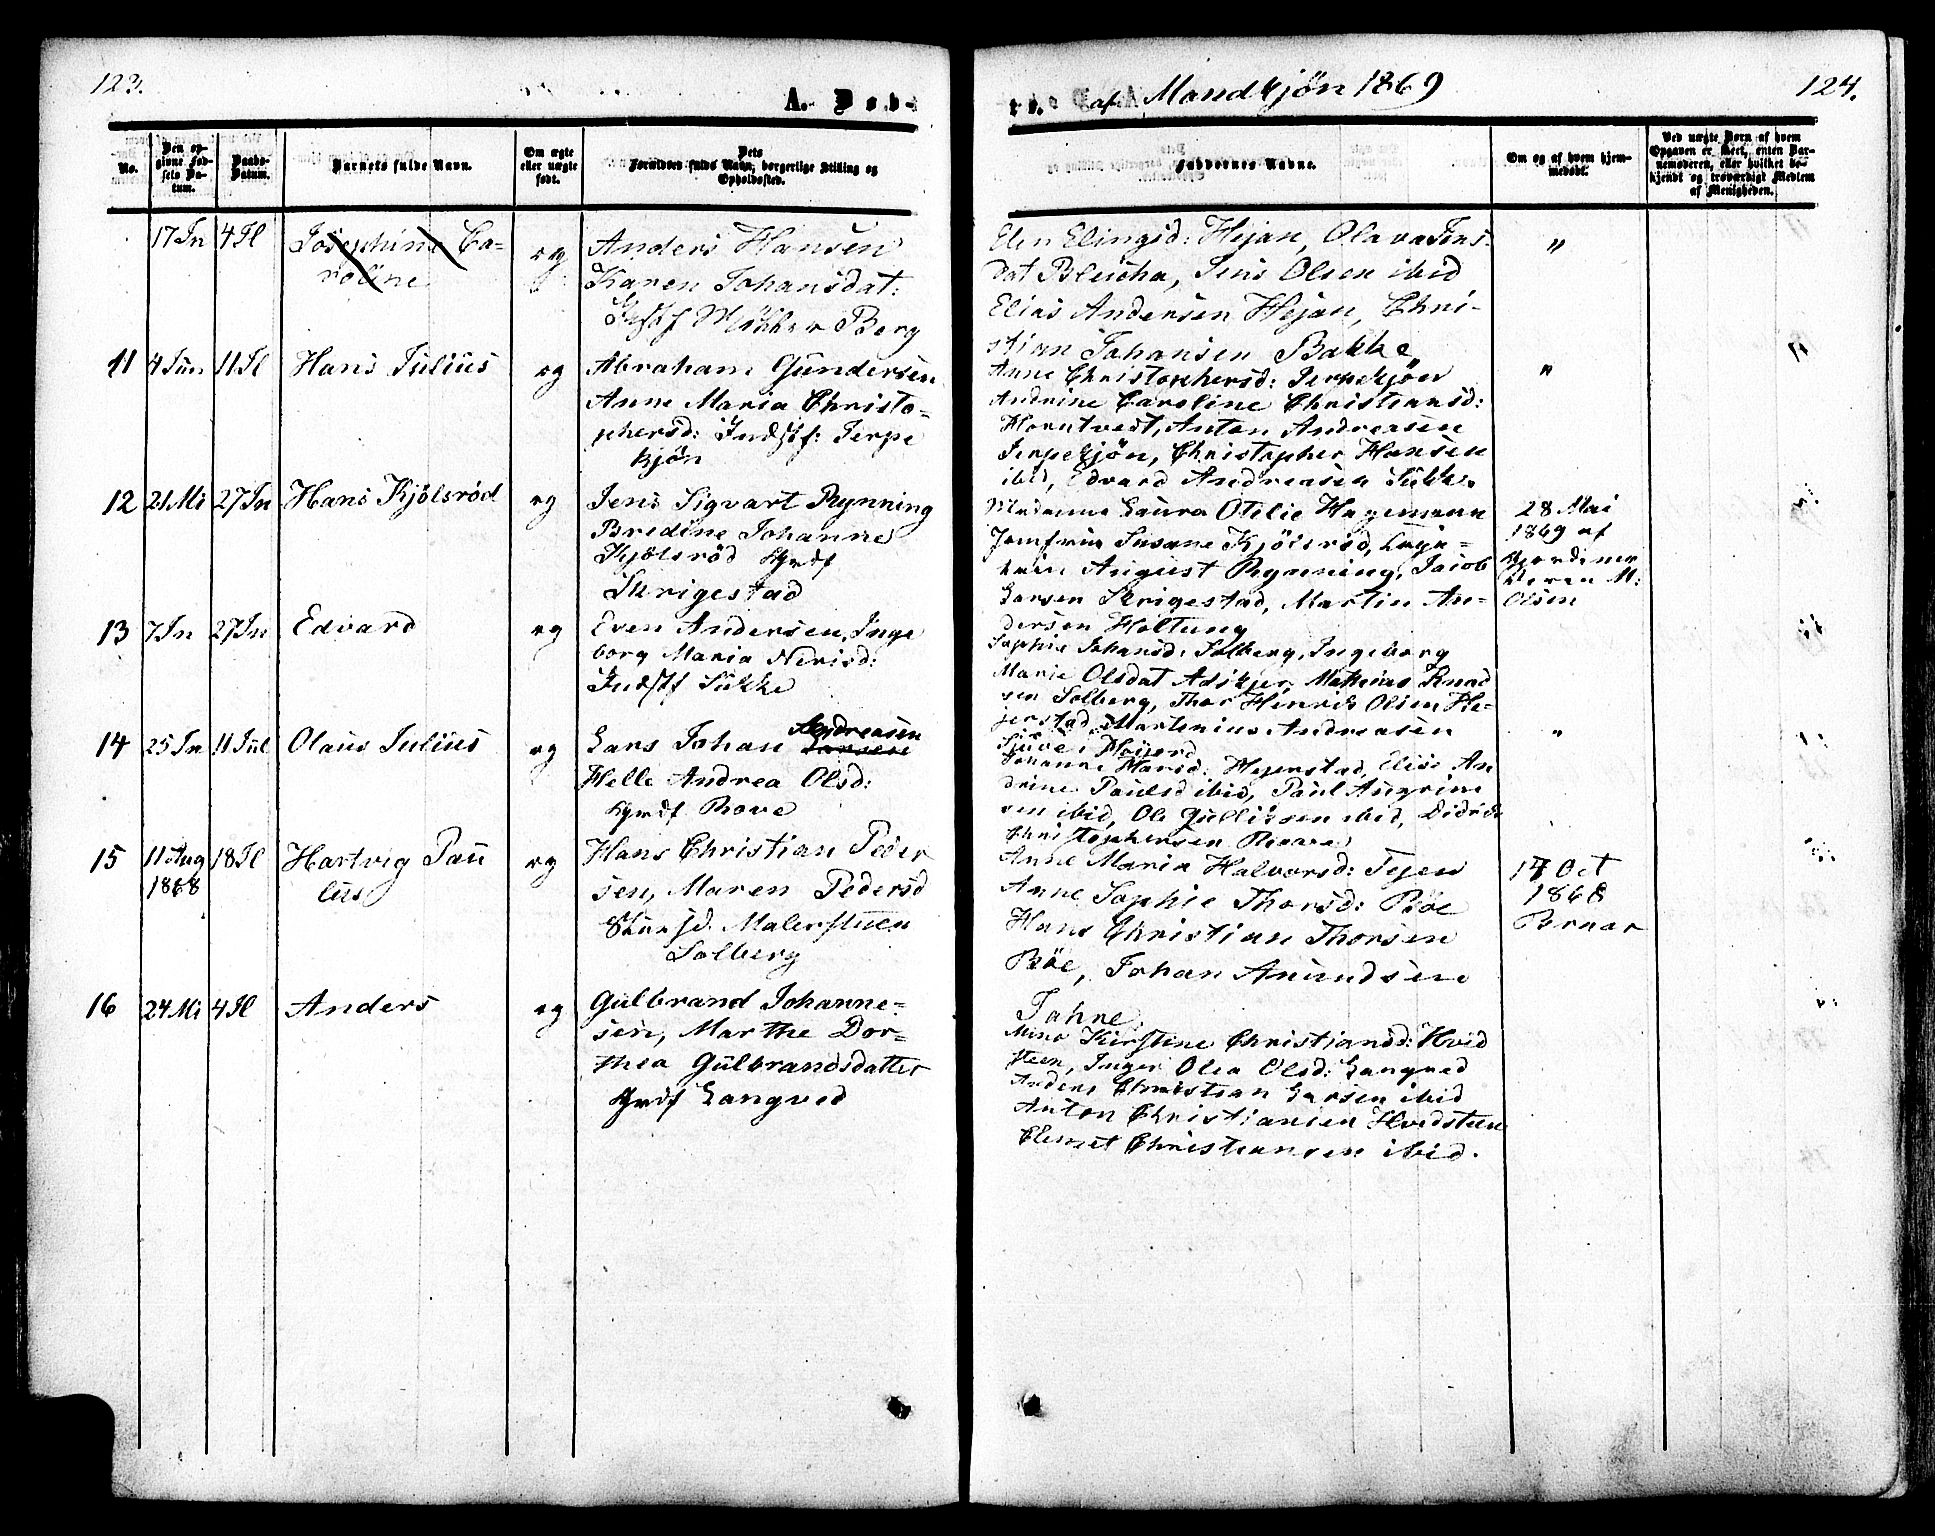 123.
A. Døb-
te. af Mandkjøn 1869
124.
No.
Den op-
givne Fød-
sels Da-
tum.
Daabs-
Datum.
Barnets fulde Navn.
Om ægte
eller uægte
født.
Dets
Forældres fulde Navn, borgerlige Stilling og
Opholdssted.
Faddernes Navne.
Om og af hvem hjem-
medøbt.
Ved uægte Børn af hvem
Opgaven er skeet, enten Bar-
nemoderen, eller hvilket be-
kjendt og troværdigt Medlem
af Menigheden.
17 Jn 4 Jl Josephine Ca-
roline
æg
Anders Hansen
Karen Johansdat:
Berg
Elen Elingsd: Hejan, Olava Jens-
dat Bleicha, Jens Olsen ibid
Elias Andersen Hejan, Chri-
stian Johansen Bakke
"
11 4 Jun 11 Jl Hans Julius
æg
Abraham Gundersen
Anne Maria Christo-
phersd: Indstf: Jerpe
kjøn
Anne Christophersd: Jerpekjøn
Andrine Caroline Christiansd:
Horntvedt, Anton Andreasen
Jerpekjøn, Christopher Hansen
ibid, Edvard Andreasen Sukke
"
12 21 Mi 27 Jn Hans Kjölsröd
æg
Jens Sigvart Rynning
Bredine Johanne
Kjölsröd Grdf
Skrigestad
Madame Laura Otilie Hagemann
Jomfru Susane Kjölsröd,
August Rynning, Jacob
Larsen Skrigestad, Martin An-
dersen Holtung
28 Mai
1869 af
Jordemor
Maren M:
Olsen
13 7 Jn 27 Jn Edvard
æg
Even Andersen, Inge
borg Maria Nerisd:
Indstf Sukke
Sophie Johansd: Solberg, Ingeborg
Marie Olsdat Adskjer, Mathias Knud
sen Solberg, Thor Henrik Olsen He-
jerstad, Martinius Andreasen
14 25 Jn 11 Jul Olaus Julius
æg
Lars Johan Andreasen
Larsen
Helle Andrea Olsd:
Grdf Rove
Johanne Hansd: Hejerstad, Elise An
drine Paulsd ibid, Paul Angrim
sen ibid, Ole Gulliksen ibid, Didrik
Christophersen
"
15 11 Aug 18 Jl Hartvig Pau
1868
lus
æg
Hans Christian Peder
sen, Maren Pedersd
Malerstuen
Solberg
Anne Maria Halvorsd: Tejen
Anne Sophie Thorsd: Böe
Hans Christian Thorsen
Böe, Johan Amundsen
Tahne
17 Oct
1868
Bruar
16 24 Mi 4 Jl Anders
æg
Gulbrand Johanne-
sen, Marthe Dor-
thea Gulbrandsdatter
Grdf Langved
Mina Kirstine Christiansd: Hvid
steen, Inger Olea Olsd: Langved
Anders Christian Larsen ibid
Anton Christiansen Hvidsteen
Clemet Christiansen ibid.